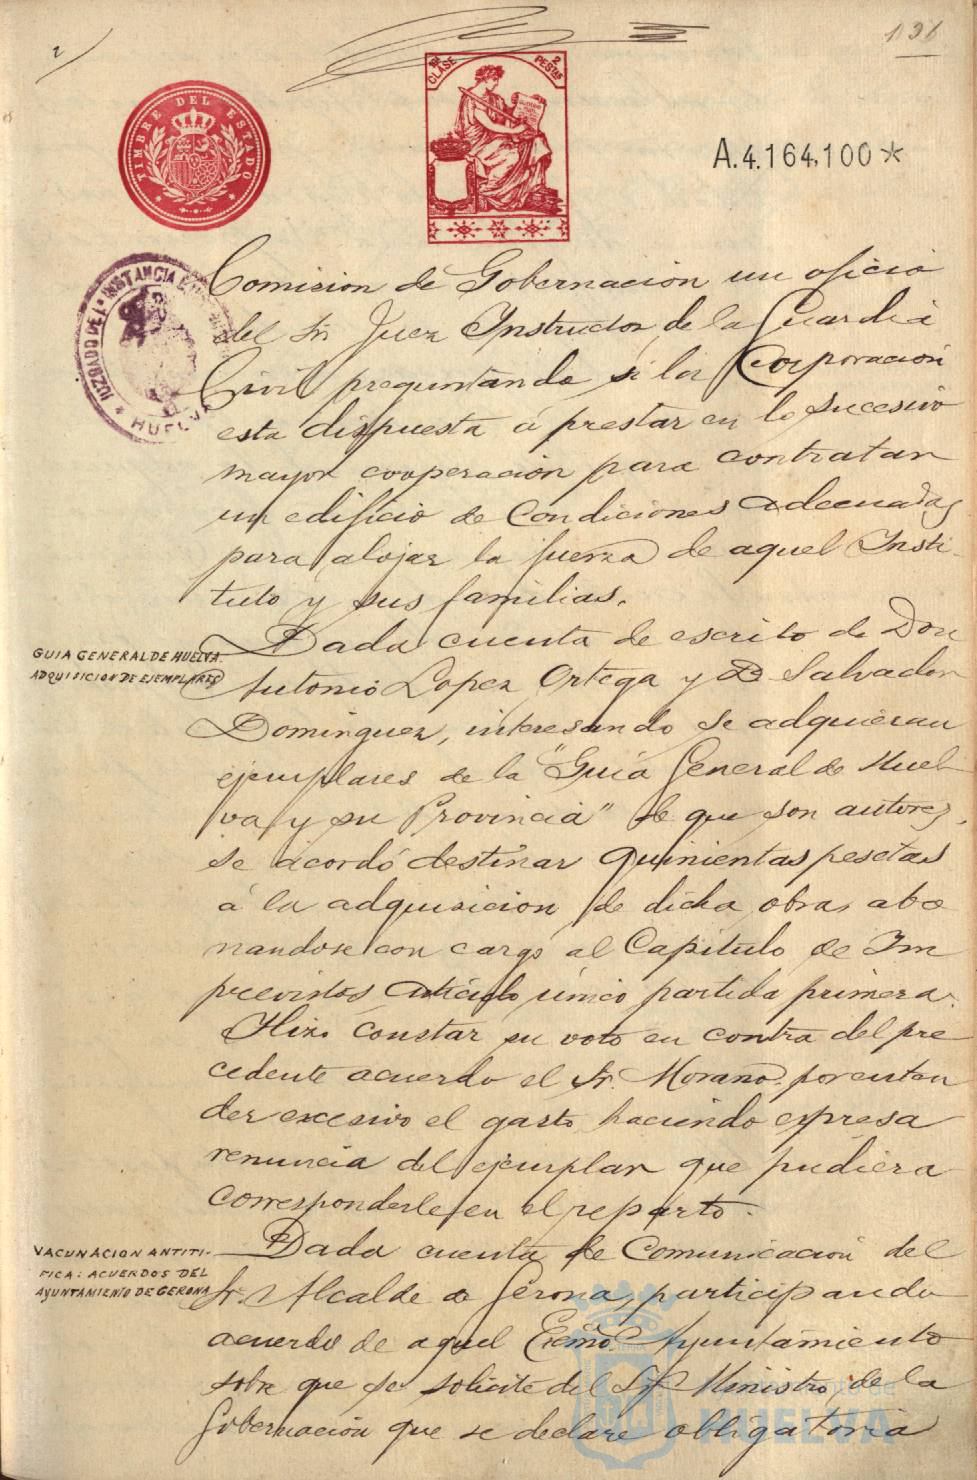 2
136
TIMBRE DEL ESTADO
10ª CLASE
2 PESTAS
A.4.164.100*
JUZGADO DE 1ª INSTANCIA E
HUELVA
Comision de Gobernación un oficio
del Sr. Juez Instructor de la Guardia
Civil preguntando si la Corporación
esta dispuesta á prestar en lo sucesivo
mayor cooperación para contratar
un edificio de Condiciones adecuadas
para alojar la fuerza de aquel Insti-
tuto y sus familias.
GUIA GENERAL DE HUELVA.
ADQUISICION DE EJEMPLARES
Dada cuenta de escrito de Don
Antonio Lopez Ortega y D. Salvador
Dominguez, interesando se adquieran
ejemplares de la "Guia General de Huel
va y su Provincia" de que son autores,
se acordó destinar quinientas pesetas
á la adquisicion de dicha obra, abo
nandose con cargo al Capitulo de Im
previstos articulo único partida primera.
Hizo constar su voto en contra del pre
cedente acuerdo el Sr. Morano. por enten
der excesivo el gasto haciendo expresa
renuncia del ejemplar que pudiera
corresponderle en el reparto.
VACUNACION ANTITI-
FICA: ACUERDOS DEL
AYUNTAMIENTO DE GERONA
Dada cuenta de Comunicación del
Sr. Alcalde de Gerona, participando
acuerdo de aquel Excmo. Ayuntamiento
sobre que se solicite del Sr. Ministro de la
Gobernación que se declare obligatoria
Ayuntamiento de
HUELVA